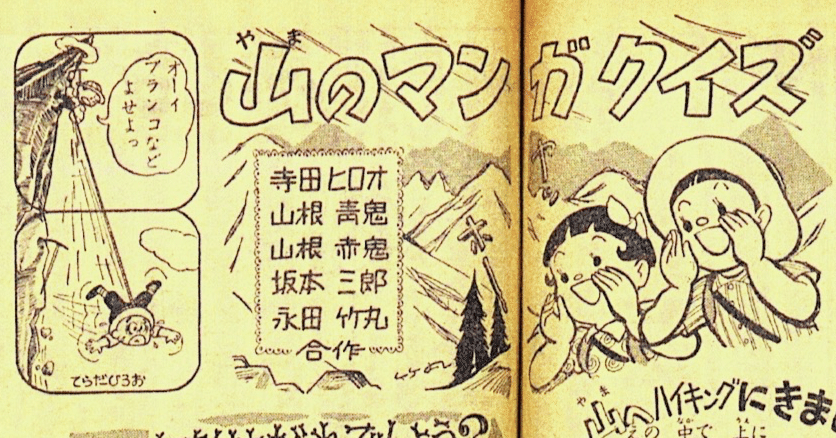 山のマンガクイズ
やま
オーイ
ブランコなど
よせよっ
てらだひろお
寺田ヒロオ
山根 青鬼
山根 赤鬼
坂本 三郎
永田 竹丸
合作
ヤッ
ホ
山へハイキングにきま
やま
の中で
上に